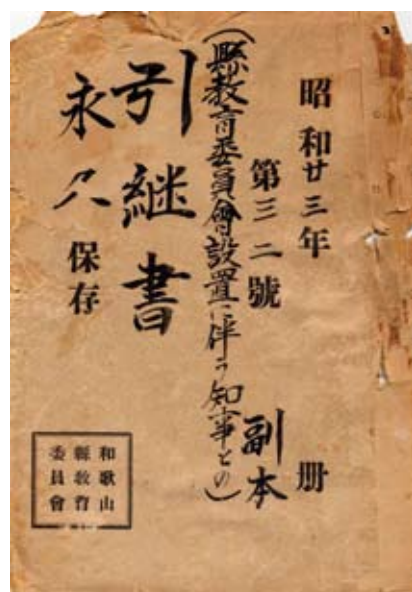 昭和廿三年 册
第三二號 副本
(縣教育委員會設置ニ伴ウ知事との)
引継書
永久保存
和歌山
縣教育
委員會